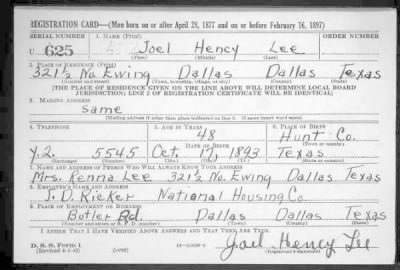 REGISTRATION CARD—(Men born on or after April 28, 1877 and on or before February 16, 1897)
SERIAL NUMBER 1. NAME (Print) ORDER NUMBER
U 625 Joel Henry Lee
(First) (Middle) (Last)
2. PLACE OF RESIDENCE (Print)
321½ No. Ewing Dallas Dallas Texas
(Number and street) (Town, township, village, or city) (County) (State)
[THE PLACE OF RESIDENCE GIVEN ON THE LINE ABOVE WILL DETERMINE LOCAL BOARD
JURISDICTION; LINE 2 OF REGISTRATION CERTIFICATE WILL BE IDENTICAL]
3. MAILING ADDRESS
Same
(Mailing address if other than place indicated on line 2. If same insert word same)
4. TELEPHONE 5. AGE IN YEARS 6. PLACE OF BIRTH
48 Hunt Co.
DATE OF BIRTH (Town or county)
Y.2. 5545 Oct. 1893 Texas
(Exchange) (Number) (Mo.) (Day) (Yr.) (State or country)
7. NAME AND ADDRESS OF PERSON WHO WILL ALWAYS KNOW YOUR ADDRESS
Mrs. Renna Lee 321½ No. Ewing Dallas Texas
8. EMPLOYER'S NAME AND ADDRESS
J. D. Ricker National Housing Co.
9. PLACE OF EMPLOYMENT OR BUSINESS
Butler Rd. Dallas Dallas Texas
(Number and street or R. F. D. number) (Town) (County) (State)
I AFFIRM THAT I HAVE VERIFIED ABOVE ANSWERS AND THAT THEY ARE TRUE.
D. S. S. Form 1
(Revised 4-1-42) (over) Joel Henry Lee
(Registrant's signature)